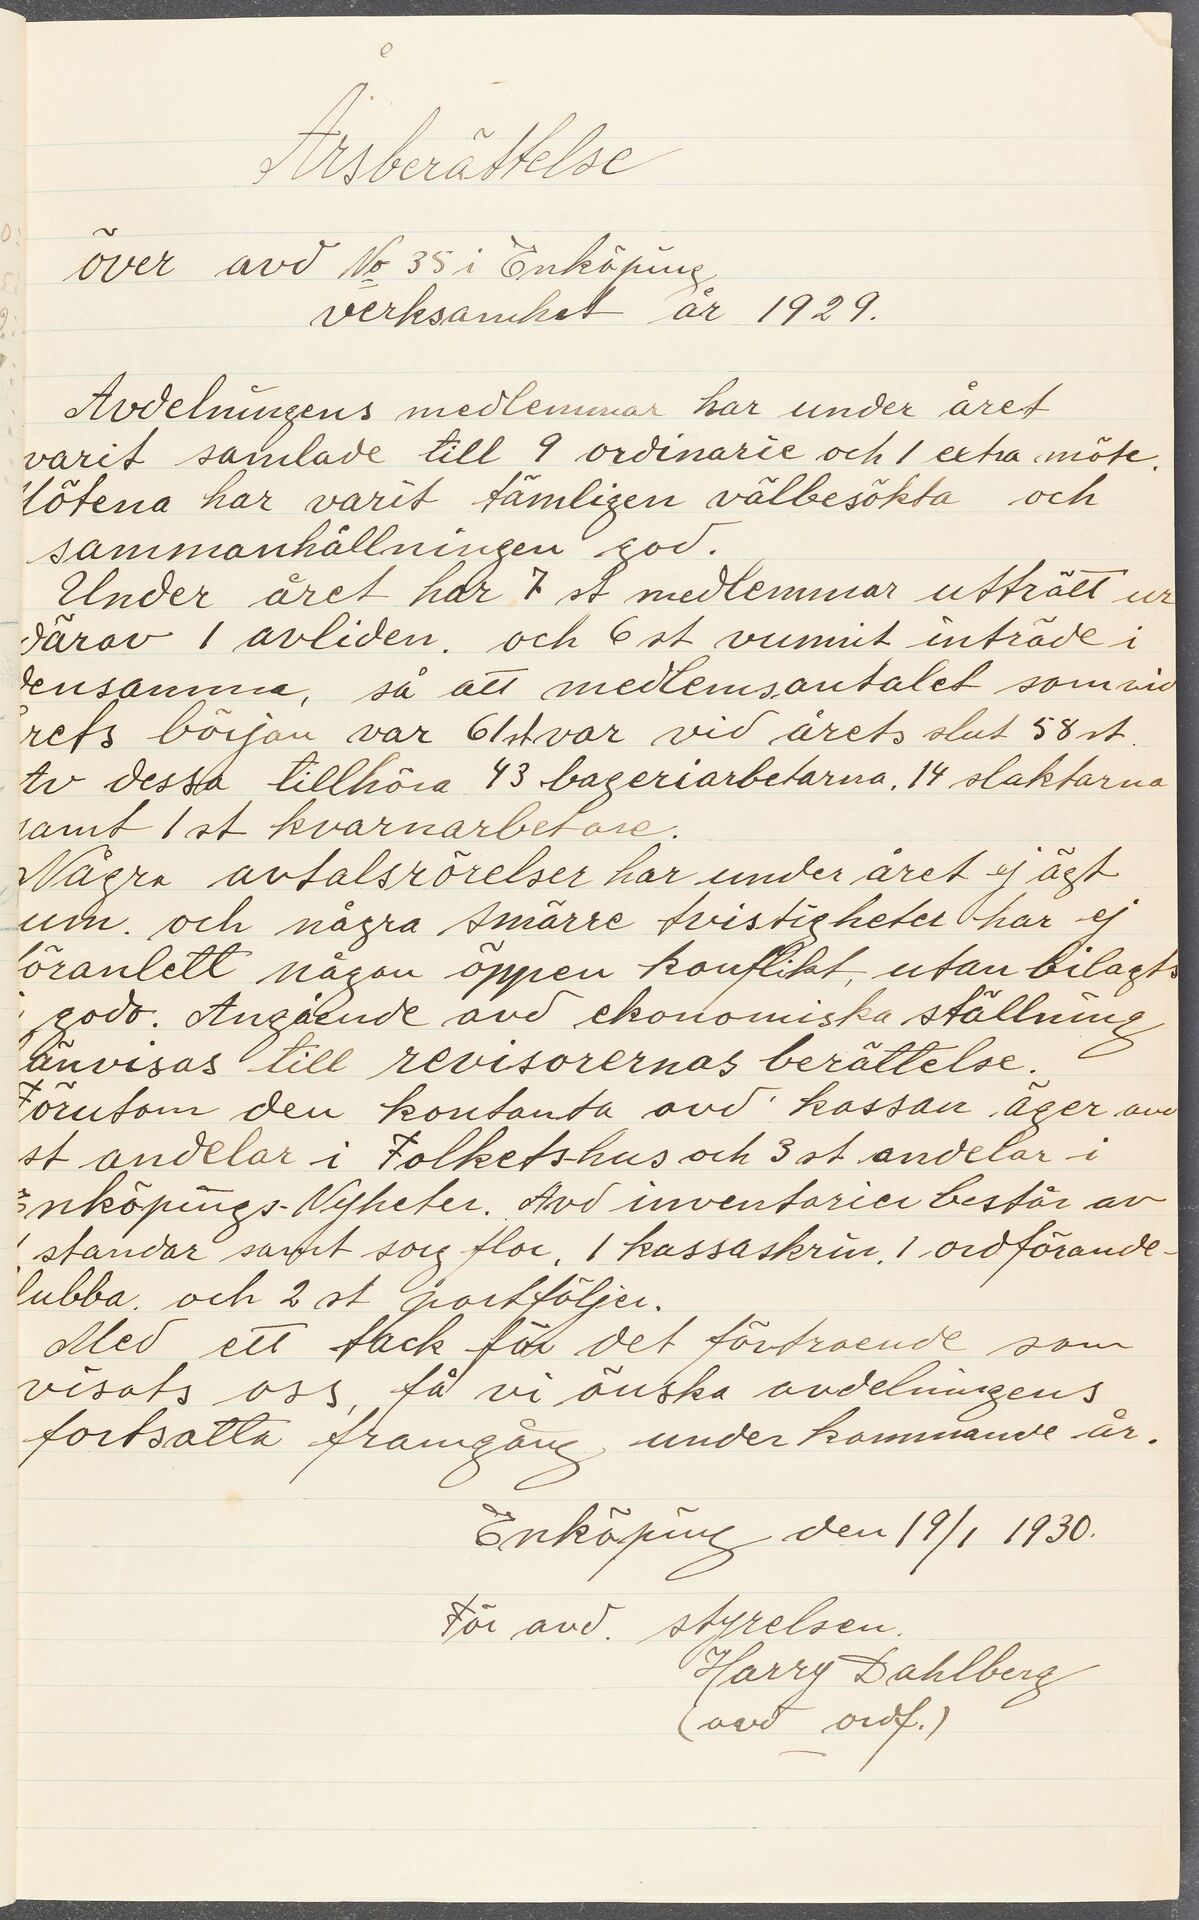 Årsberättelse
över avd No 35 i Enköping
verksamhet år 1929.
Avdelningens medlemmar har under året
varit samlade till 9 ordinarie och 1 extra möte.
Mötena har varit tämligen välbesökta och
sammanhållningen god.
Under året har 7 st medlemmar utträtt ur
därav 1 avliden. och 6 st vunnit inträde i
densamma, så att medlemsantalet som vid
årets början var 61 st var vid årets slut 58 st.
Av dessa tillhöra 43 bageriarbetarna, 14 slaktarna
samt 1 st kvarnarbetare.
Några avtalsrörelser har under året ej ägt
rum. och några smärre tvistigheter har ej
föranlett någon öppen konflikt, utan bilagts
i godo. Angående avd ekonomiska ställning
hänvisas till revisorernas berättelse.
Förutom den kontanta avd kassan äger avd
st andelar i Folketshus och 3 st andelar i
Enköpings-Nyheter. Avd inventarier består av
1 standar samt sorgflor, 1 kassaskrin, 1 ordförande-
lubba. och 2 st portföljer.
Med ett tack för det förtroende som
visats oss, få vi önska avdelningens
fortsatta framgång under kommande år.
Enköping den 19/1 1930.
För avd. styrelsen.
Harry Dahlberg
(avd ordf.)